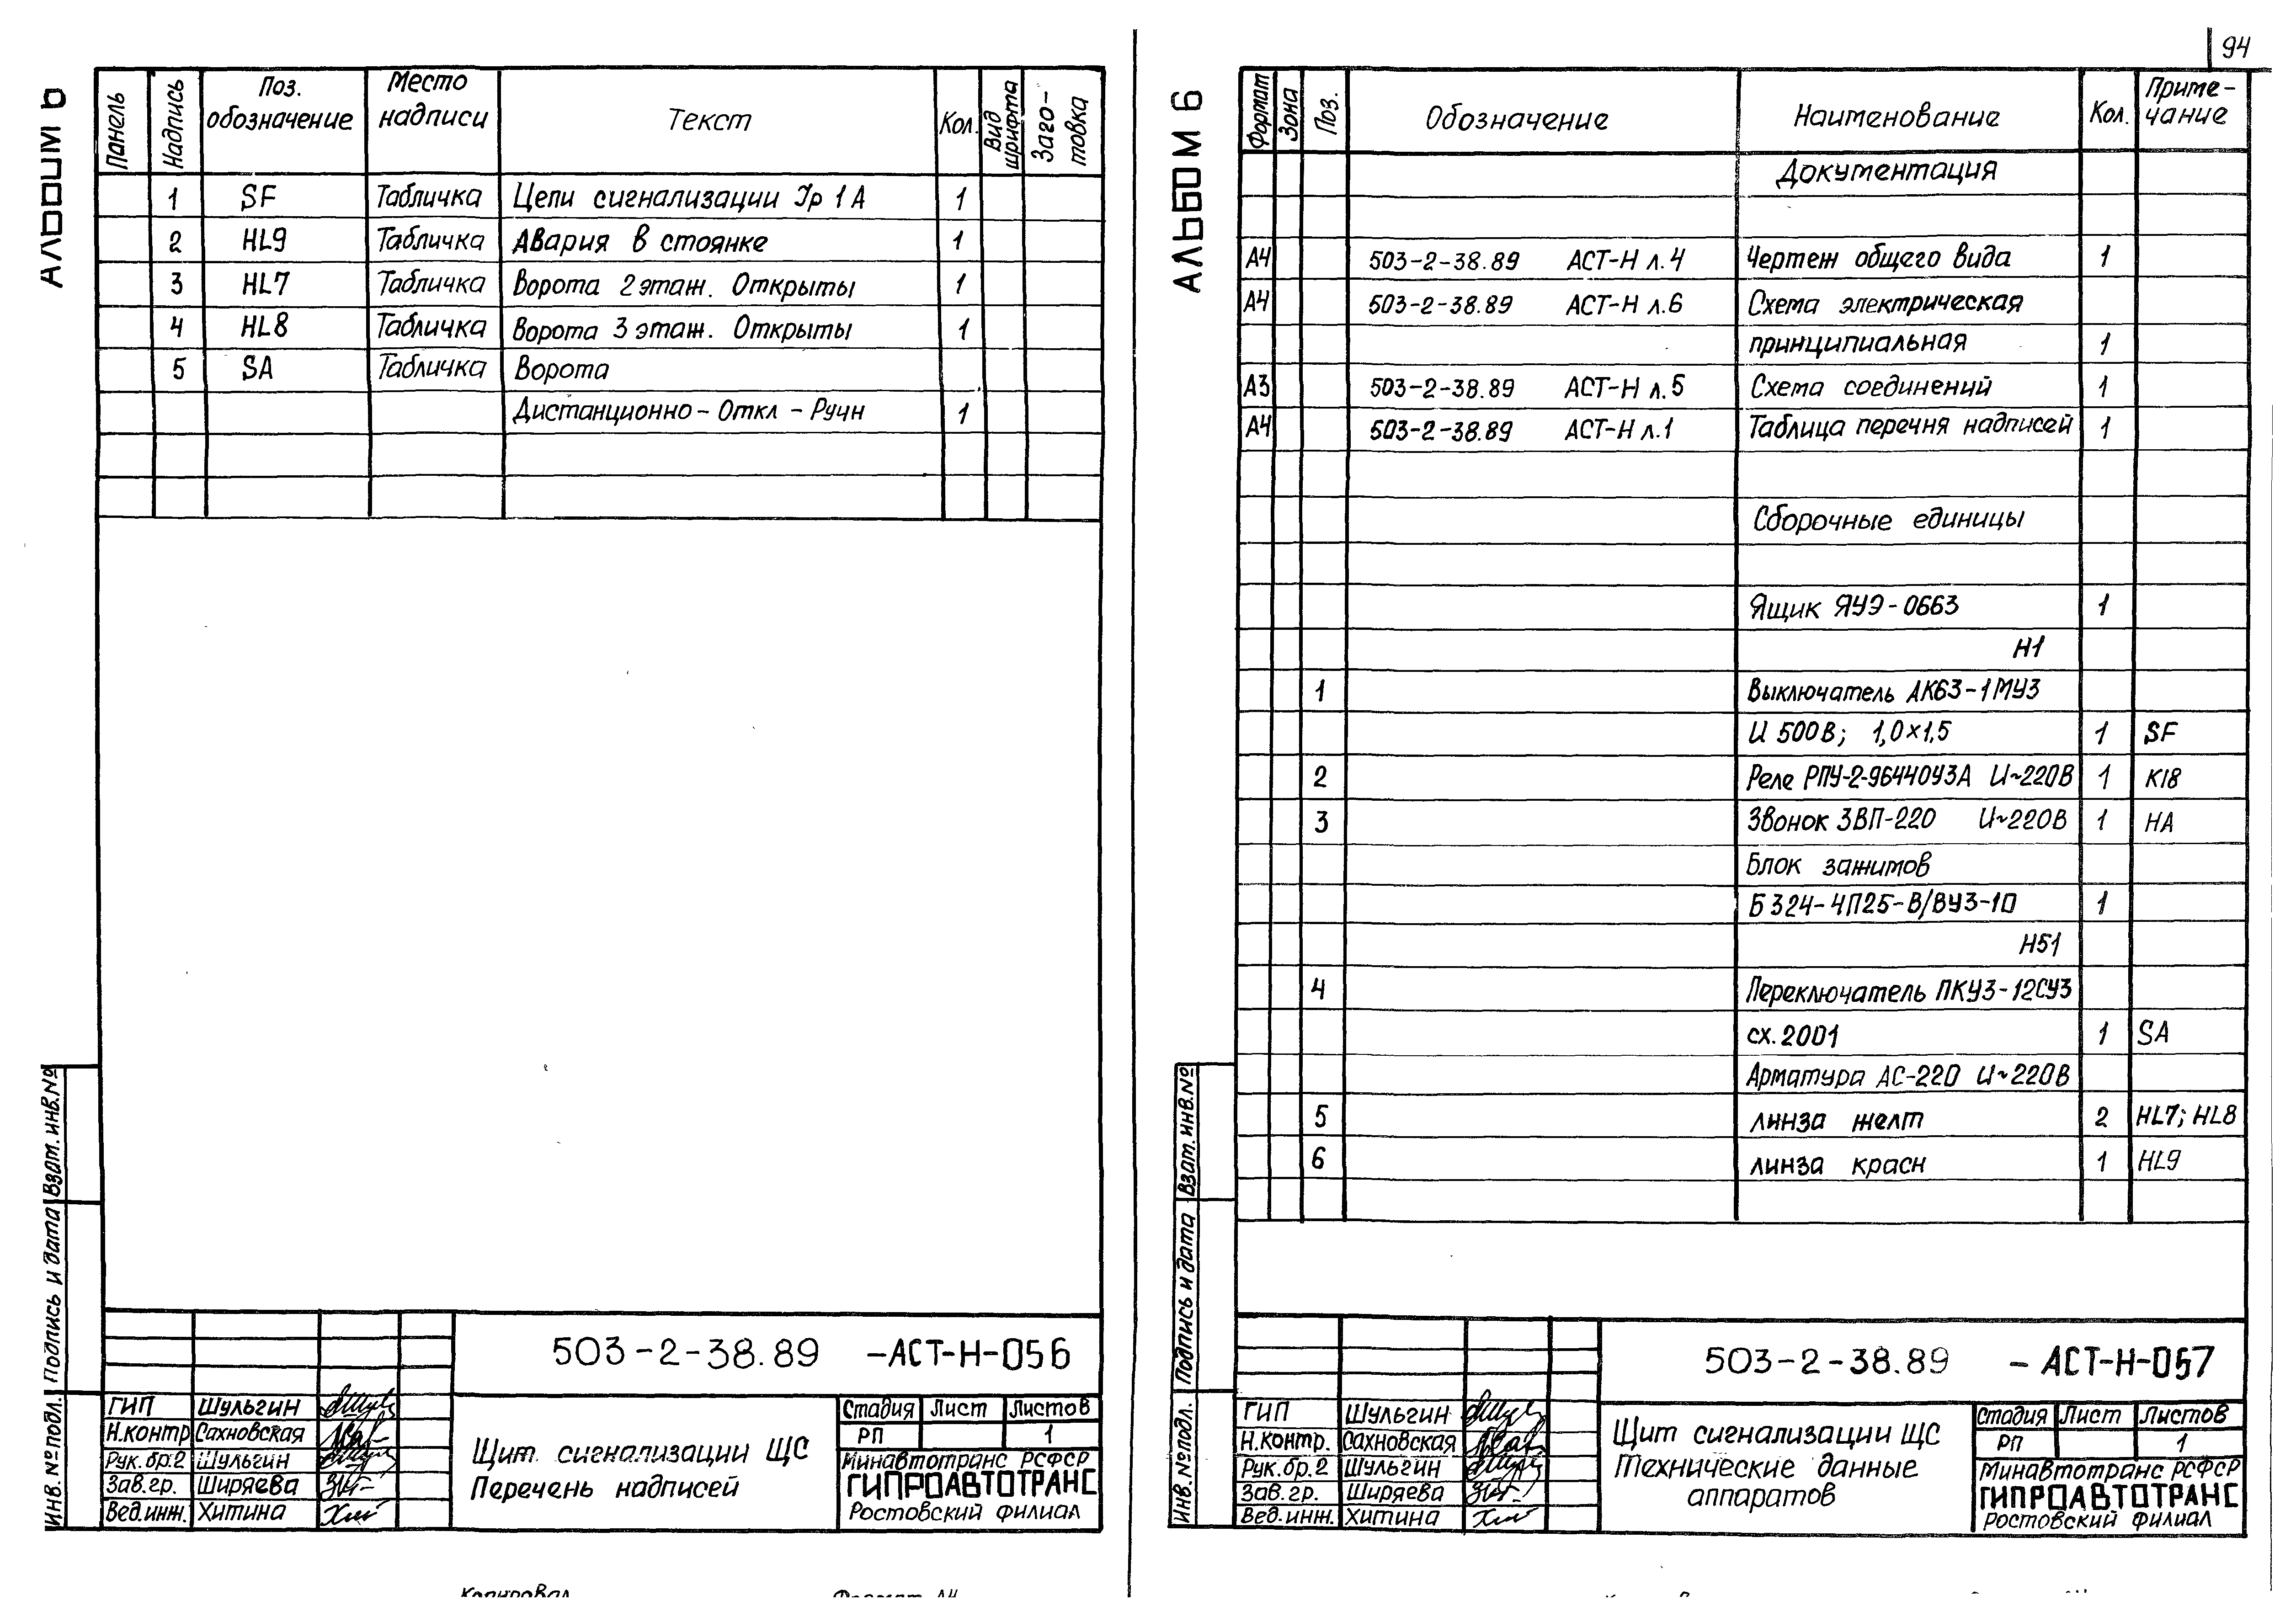 94
АЛЬБОМ 6
Панель
Надпись
Поз. обозначение
Место надписи
Текст
Кол.
Вид шрифта
Заго-товка
1 SF Табличка Цепи сигнализации Iр 1А 1
2 HL9 Табличка Авария в стоянке 1
3 HL7 Табличка Ворота 2 этаж. Открыты 1
4 HL8 Табличка Ворота 3 этаж. Открыты 1
5 SA Табличка Ворота
Дистанционно – Откл – Ручн 1
Взам. инв.№
Подпись и дата
Инв. № подл.
503-2-38.89 -АСТ-Н-056
ГИП Шульгин
Н.контр Сахновская
Рук. бр.2 Шульгин
Зав.гр. Ширяева
Вед.инж. Хитина
Щит сигнализации ЩС
Перечень надписей
Стадия Лист Листов
РП 1
Минавтотранс РСФСР
ГИПРОАВТОТРАНС
Ростовский филиал
Копировал
Формат А4
АЛЬБОМ 6
Формат
Зона
Поз.
Обозначение
Наименование
Кол.
Приме-чание
Документация
А4 503-2-38.89 АСТ-Н л.4 Чертеж общего вида 1
А4 503-2-38.89 АСТ-Н л.6 Схема электрическая
принципиальная 1
А3 503-2-38.89 АСТ-Н л.5 Схема соединений 1
А4 503-2-38.89 АСТ-Н л.1 Таблица перечня надписей 1
Сборочные единицы
Ящик ЯУЭ-0663 1
Н1
1 Выключатель АК63-1МУ3
И 500В; 1,0×1,5 1 SF
2 Реле РПУ-2-96440У3А И~220В 1 К18
3 Звонок ЗВП-220 И~220В 1 НА
Блок зажимов
Б324-4П25-В/ВУ3-10 1
Н51
4 Переключатель ПКУ3-12СУ3
сх.2001 1 SA
Арматура АС-220 И~220В
5 линза желт 2 HL7; HL8
6 линза красн 1 HL9
Взам. инв.№
Подпись и дата
Инв. № подл.
503-2-38.89 - АСТ-Н-057
ГИП Шульгин
Н.контр. Сахновская
Рук.бр.2 Шульгин
Зав.гр. Ширяева
Вед.инж. Хитина
Щит сигнализации ЩС
Технические данные
аппаратов
Стадия Лист Листов
РП 1
Минавтотранс РСФСР
ГИПРОАВТОТРАНС
Ростовский филиал